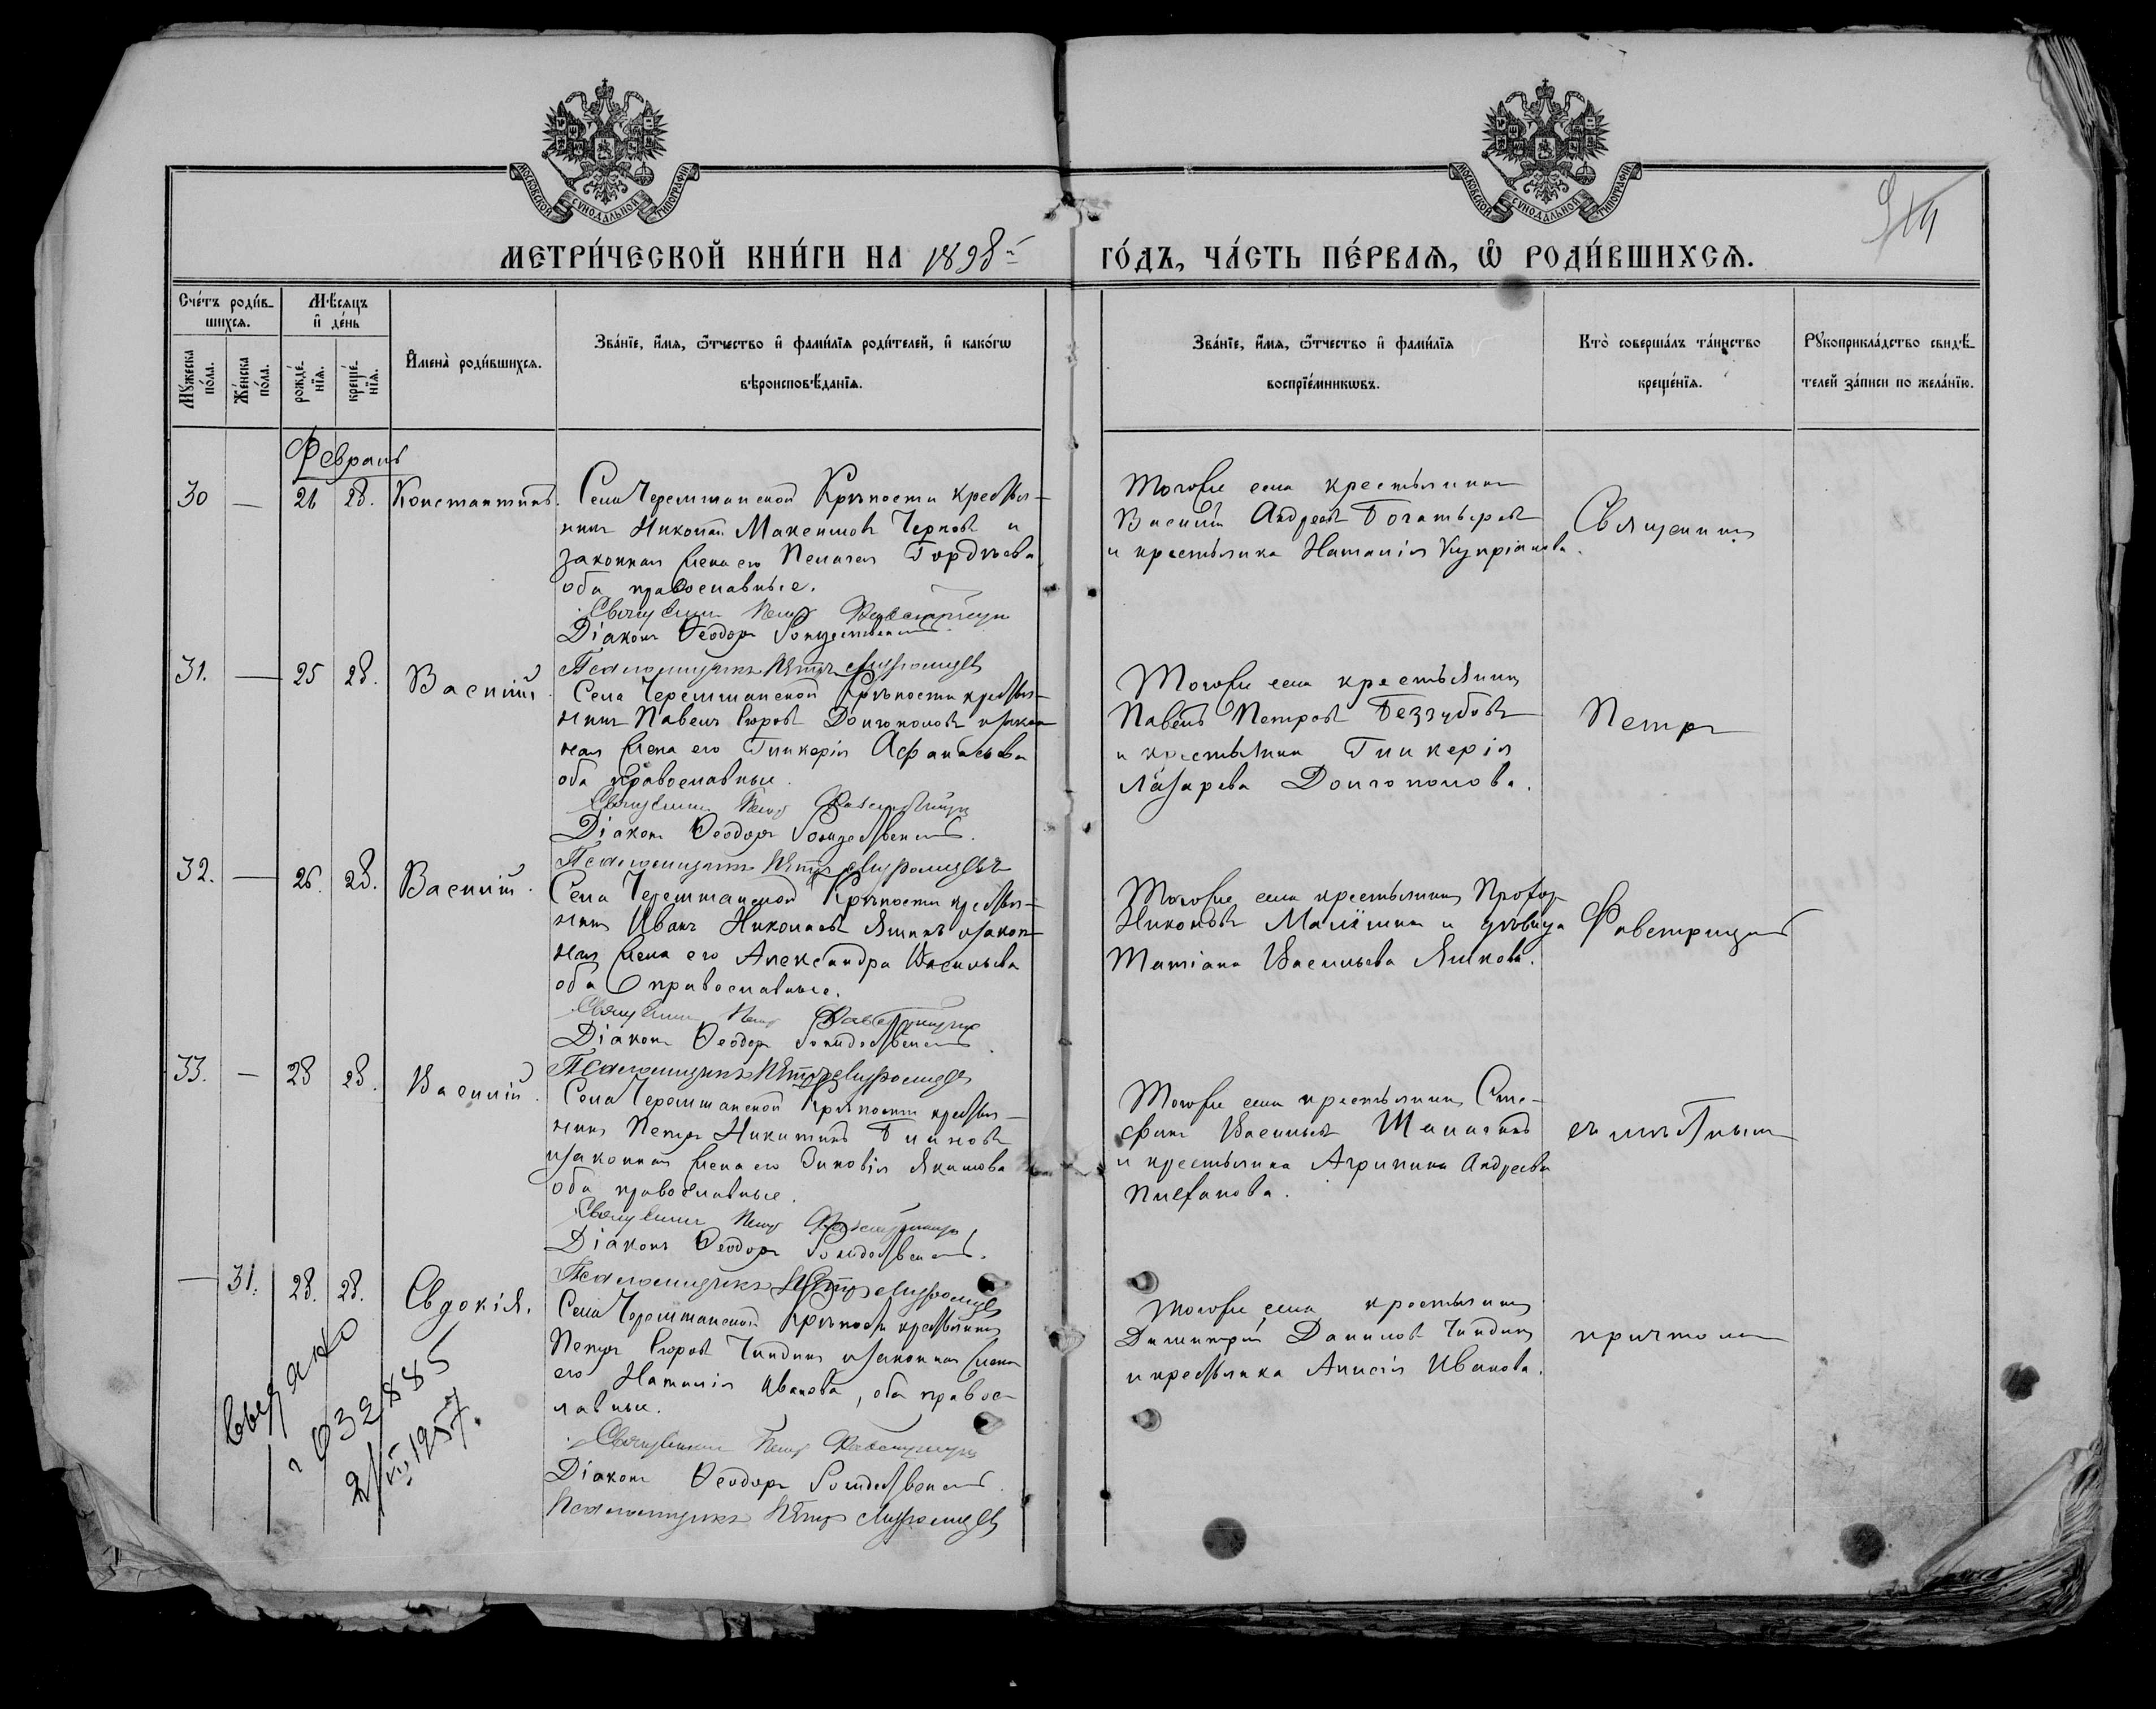 МОСКОВСКОЙ СѴНОДАЛЬНОЙ ТИПОГРАФІИ
МОСКОВСКОЙ СѴНОДАЛЬНОЙ ТИПОГРАФІИ
МЕТРИ́ЧЕСКОЙ КНИ́ГИ НА 1898й
ГО́ДЪ, ЧА́СТЬ ПЕ́РВАѦ, Ѽ РОДИ́ВШИХСѦ.
Сче́тъ роди́в-
шихсѧ.
Мѣ́сѧцъ
и҆ де́нь
Мꙋ́жеска по́ла.
Же́нска по́ла.
рожде́-нїѧ.
креще́-нїѧ.
И҆мена̀ роди́вшихсѧ.
Зва́нїе, и҆́мѧ, ѻ҆́тчество и҆ фами́лїѧ роди́телей, и҆ како́гѡ
вѣроисповѣ́данїѧ.
Зва́нїе, и҆́мѧ, ѻ҆́тчество и҆ фами́лїѧ
воспрїе́мникѡвъ.
Кто̀ соверша́лъ та́инство
креще́нїѧ.
Рꙋкоприкла́дство свидѣ́-
телей за́писи по жела́нїю.
Февраль
30 — 26 28. Константинъ.
Села Черемшанской Крѣпости крестья-
нинъ Николай Максимовъ Черновъ и
законная жена его Пелагея Гордѣева
оба православные.
Священникъ Петръ Фаветрицкій
Діаконъ Ѳеодоръ Рождественскій
Псаломщикъ Петръ
Тогоже села крестьянинъ
Василій Андреевъ Богатыревъ
и крестьянка Наталія Купріанова.
Священникъ
31. — 25 28. Василій
Села Черемшанской Крѣпости крестья-
нинъ Павелъ Егоровъ Долгополовъ и закон-
ная жена его Гликерія Афанасьева
оба православные.
Священникъ Петръ Фаветрицкій
Діаконъ Ѳеодоръ Рождественскій.
Псаломщикъ Петръ
Тогоже села крестьянинъ
Павелъ Петровъ Беззубовъ
и крестьянка Гликерія
Лазарева Долгополова.
Петръ
32. — 26. 28. Василій.
Села Черемшанской Крѣпости крестья-
нинъ Иванъ Николаевъ Яшинъ и закон-
ная жена его Александра Васильева
оба православные.
Священникъ Петръ Фаветрицкій
Діаконъ Ѳеодоръ Рождественскій.
Псаломщикъ Петръ
Тогоже села крестьянинъ
Никоновъ и дѣвица
Татіана Васильева
Фаветрицкій
33. — 28 28. Василій.
Села Черемшанской Крѣпости крестья-
нинъ Петръ Никитинъ Блиновъ
и законная жена его Зиновія Якимова
оба православные.
Священникъ Петръ Фаветрицкій
Діаконъ Ѳеодоръ Рождественскій.
Псаломщикъ Петръ
Тогоже села крестьянинъ Сте-
фанъ Васильевъ
и крестьянка Агрипина Андреева
съ мѣстнымъ
— 31. 28. 28. Евдокія.
Села Черемшанской Крѣпости крестьянинъ
Петръ Егоровъ Чиндинъ и законная жена
его Наталія Иванова, оба правос-
лавные.
Священникъ Петръ Фаветрицкій
Діаконъ Ѳеодоръ Рождественскій.
Псаломщикъ Петръ
Тогоже села крестьянинъ
Димитрій Даниловъ Чиндинъ
и крестьянка Анисія Иванова.
причтомъ
032885
1957.